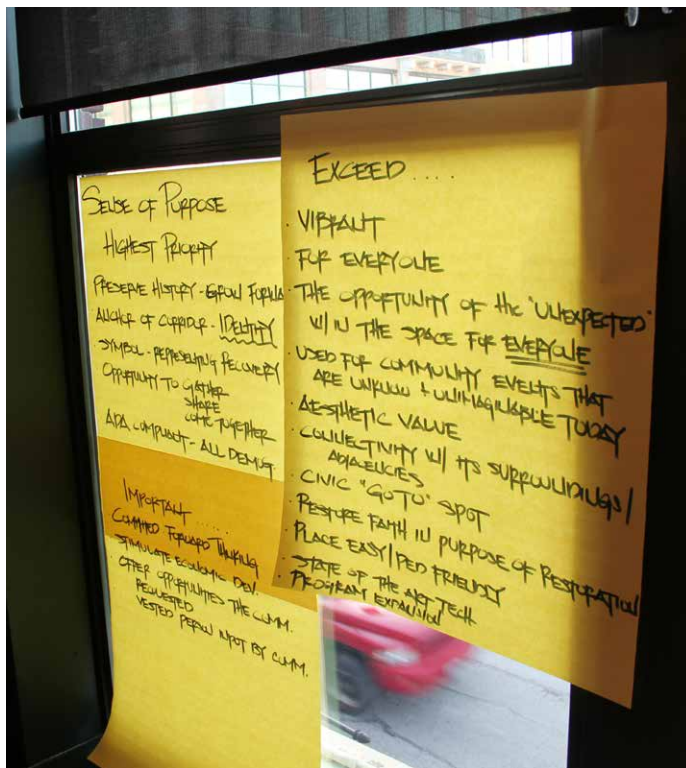 SENSE OF PURPOSE
HIGHEST PRIORITY
PRESERVE HISTORY - GROW FORWA
ANCHOR OF CORRIDOR - IDENTITY
· SYMBOL - REPRESENTING RECOVERY
OPPORTUNITY TO GATHER
SHARE
COME TOGETHER
ADA COMPLIANT - ALL DEMOG
IMPORTANT .....
COMMITTED FORWARD THINKING
STIMULATE ECONOMIC DEV.
OFFER OPPORTUNITIES THE COMM.
REQUESTED
VESTED PERSON INPUT BY COMM.
EXCEED ....
· VIBRANT
· FOR EVERYONE
· THE OPPORTUNITY OF the "UNEXPECTED"
W/IN THE SPACE FOR EVERYONE
· USED FOR COMMUNITY EVENTS THAT
ARE UNKNOWN + UNIMAGINABLE TODAY
· AESTHETIC VALUE
· CONNECTIVITY W/ ITS SURROUNDINGS/
ADJACENCIES
· CIVIC "GOTO" SPOT
· RESTORE FAITH IN PURPOSE OF RESTORATION
· PLACE EASY/PED FRIENDLY
· STATE OF THE ART TECH
· PROGRAM EXPANSION